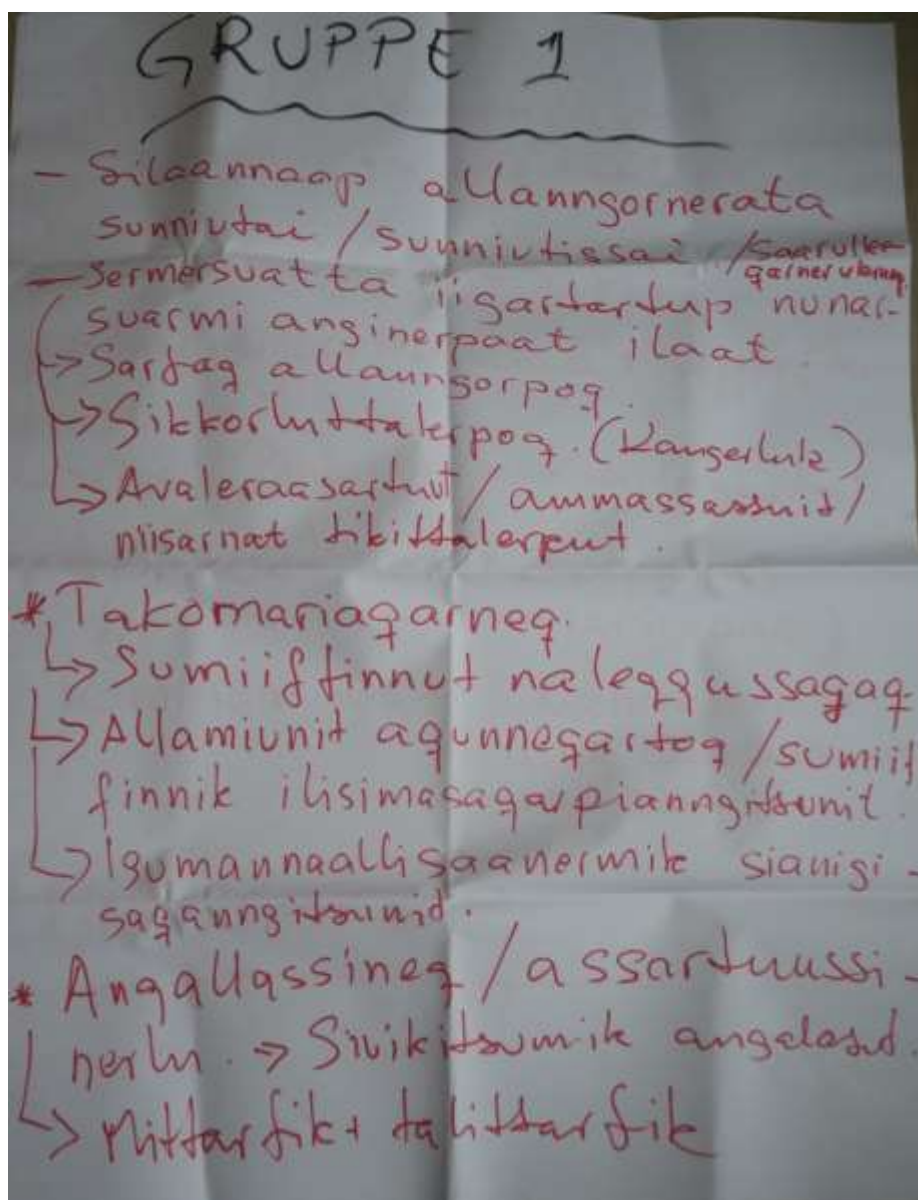 GRUPPE 1
- Silaannaap allanngornerata
sunniutai / sunniutissai / saarullee-
qarnerulernng
- Sermersuatta iigartartup nunar-
suarmi anginerpaat ilaat.
-> Sarfaq allanngorpoq.
-> Sikkorluttalerpoq. (Kangerluk)
-> Avaleraasartuut / ammassassuit /
niisarnat tikittalerput.
* Takornariaqarneq.
-> Sumiiffinnut naleqqussagaq
-> Allamiunit aqunneqartoq / sumiif
finnik ilisimasaqarpianngitsunit.
-> Isumannaallisaanermik sianigi-
saqanngitsunit.
* Angallassineq / assartuussi-
nerlu. -> Sivikitsumik angalasut.
-> Mittarfik + talittarfik